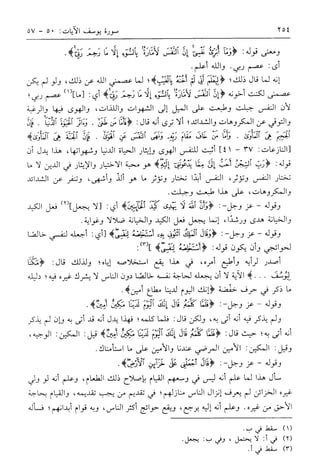 ٢٥٤ سورة يوسف الآيات: ٥٠ - ٥٧
ومعنى قوله: ﴿وَمَا أُبَرِّئُ نَفْسِي إِنَّ النَّفْسَ لَأَمَّارَةٌ بِالسُّوءِ إِلَّا مَا رَحِمَ رَبِّي﴾.
أي: عصم ربي. والله أعلم.
إنه لما قال ذلك: ﴿لِيَعْلَمَ أَنِّي لَمْ أَخُنْهُ بِالْغَيْبِ﴾؛ لما عصمني الله عن ذلك، ولو لم يكن
عصمني لكنت أخونه ﴿إِنَّ النَّفْسَ لَأَمَّارَةٌ بِالسُّوءِ إِلَّا مَا رَحِمَ رَبِّي﴾ أي: [ما](١) عصم ربي؛
لأن النفس جبلت وطبعت على الميل إلى الشهوات واللذات، والهوى فيها والرغبة
والتوقي عن المكروهات والشدائد؛ ألا ترى أنه قال: ﴿فَأَمَّا مَنْ طَغَى . وَآثَرَ الْحَيَاةَ الدُّنْيَا . فَإِنَّ
الْجَحِيمَ هِيَ الْمَأْوَى . وَأَمَّا مَنْ خَافَ مَقَامَ رَبِّهِ وَنَهَى النَّفْسَ عَنِ الْهَوَى . فَإِنَّ الْجَنَّةَ هِيَ الْمَأْوَى﴾
[النازعات: ٣٧ - ٤١] أثبت للنفس الهوى وإيثار الحياة الدنيا وشهواتها، هذا يدل أن
قوله: ﴿رَبِّ السِّجْنُ أَحَبُّ إِلَيَّ مِمَّا يَدْعُونَنِي إِلَيْهِ﴾ هو محبة الاختيار والإيثار في الدين لا ما
تختار النفس وتؤثر، النفس أبدًا تختار وتؤثر ما هو ألذ وأشهى، وتنفر عن الشدائد
والمكروهات، على هذا طبعت وجبلت.
وقوله - عز وجل -: ﴿وَأَنَّ اللَّهَ لَا يَهْدِي كَيْدَ الْخَائِنِينَ﴾ أي: [لا يجعل](٢) فعل الكيد
والخيانة هدى ورشدًا، إنما يجعل فعل الكيد والخيانة ضلالا وغواية.
وقوله - عز وجل -: ﴿وَقَالَ الْمَلِكُ ائْتُونِي بِهِ أَسْتَخْلِصْهُ لِنَفْسِي﴾ [أي: أجعله لنفسي خالصًا
لحوائجي وأن يكون قوله: ﴿أَسْتَخْلِصْهُ لِنَفْسِي﴾ ](٣):
أصدر لرأيه وأطيع أمره، في هذا يقع استخلاصه إياه؛ ولذلك قال: ﴿مَكَّنَّا
لِيُوسُفَ ...﴾ الآية لا أن يجعله لحاجة نفسه خالصًا دون الناس لا يشرك غيره فيه؛ دليله
ما ذكر في حرف حفصة ﴿إنك اليوم لدينا مطاع أمين﴾.
وقوله - عز وجل -: ﴿فَلَمَّا كَلَّمَهُ قَالَ إِنَّكَ الْيَوْمَ لَدَيْنَا مَكِينٌ أَمِينٌ﴾.
ولم يذكر فيه أنه أتى به، ولكن قال: فلما كلمه؛ فهذا يدل أنه قد أتى به وإن لم يذكر
أنه أتى به؛ حيث قال: ﴿فَلَمَّا كَلَّمَهُ قَالَ إِنَّكَ الْيَوْمَ لَدَيْنَا مَكِينٌ أَمِينٌ﴾ قيل: المكين: الوجيه،
وقيل: المكين: الأمين المرضي عندنا والأمين على ما استأمناك.
وقوله - عز وجل -: ﴿قَالَ اجْعَلْنِي عَلَى خَزَائِنِ الْأَرْضِ﴾.
سأل هذا لما علم أنه ليس في وسعهم القيام بإصلاح ذلك الطعام، وعلم أنه لو ولي
غيره الخزائن لم يعرف إنزال الناس منازلهم؛ في تقديم من يجب تقديمه، والقيام بحاجة
الأحق من غيره. وعلم أنه إليه يرجع، ويقع حوائج أكثر الناس، وبه قوام أبدانهم؛ فسأله
(١) سقط في ب.
(٢) في أ: لا يحتمل ، وفي ب: يجعل.
(٣) سقط في أ.